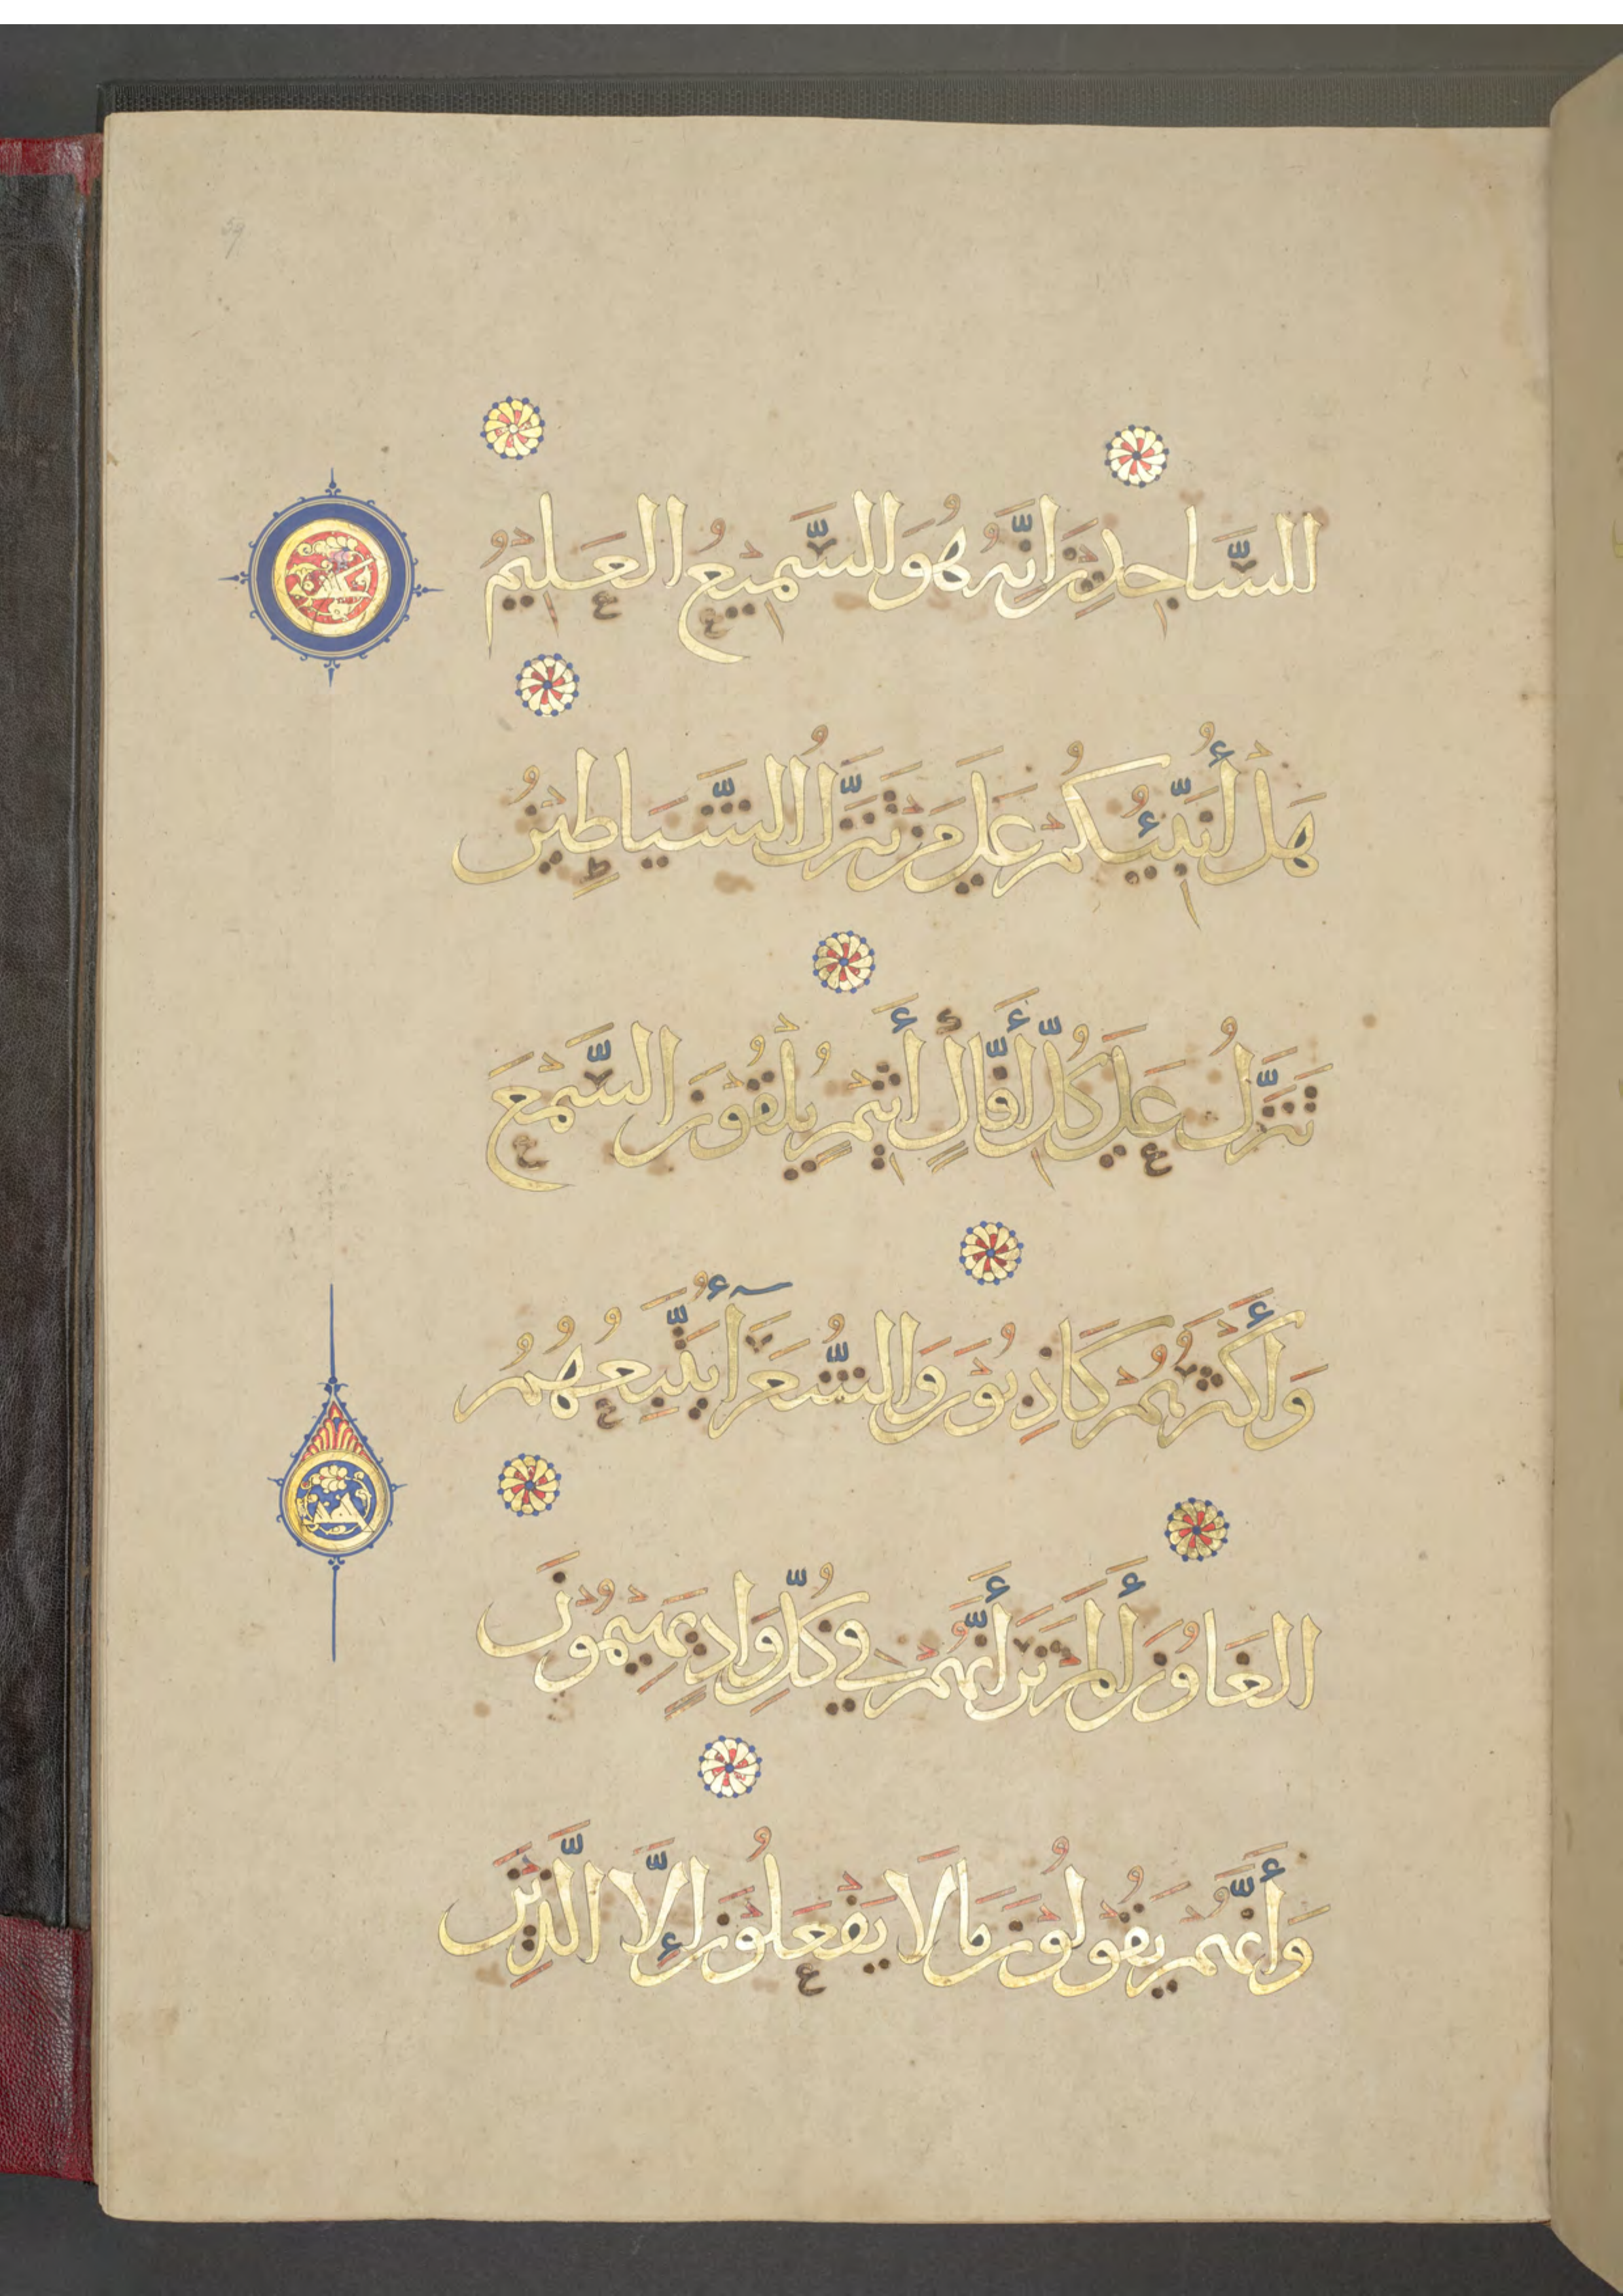 59
السَّاجِدِينَ إِنَّهُ هُوَ السَّمِيعُ الْعَلِيمُ
هَلْ أُنَبِّئُكُمْ عَلَى مَنْ تَنَزَّلُ الشَّيَاطِينُ
تَنَزَّلُ عَلَى كُلِّ أَفَّاكٍ أَثِيمٍ يُلْقُونَ السَّمْعَ
وَأَكْثَرُهُمْ كَاذِبُونَ وَالشُّعَرَآءُ يَتَّبِعُهُمُ
الْغَاوُونَ أَلَمْ تَرَ أَنَّهُمْ فِي كُلِّ وَادٍ يَهِيمُونَ
وَأَنَّهُمْ يَقُولُونَ مَا لَا يَفْعَلُونَ إِلَّا الَّذِينَ